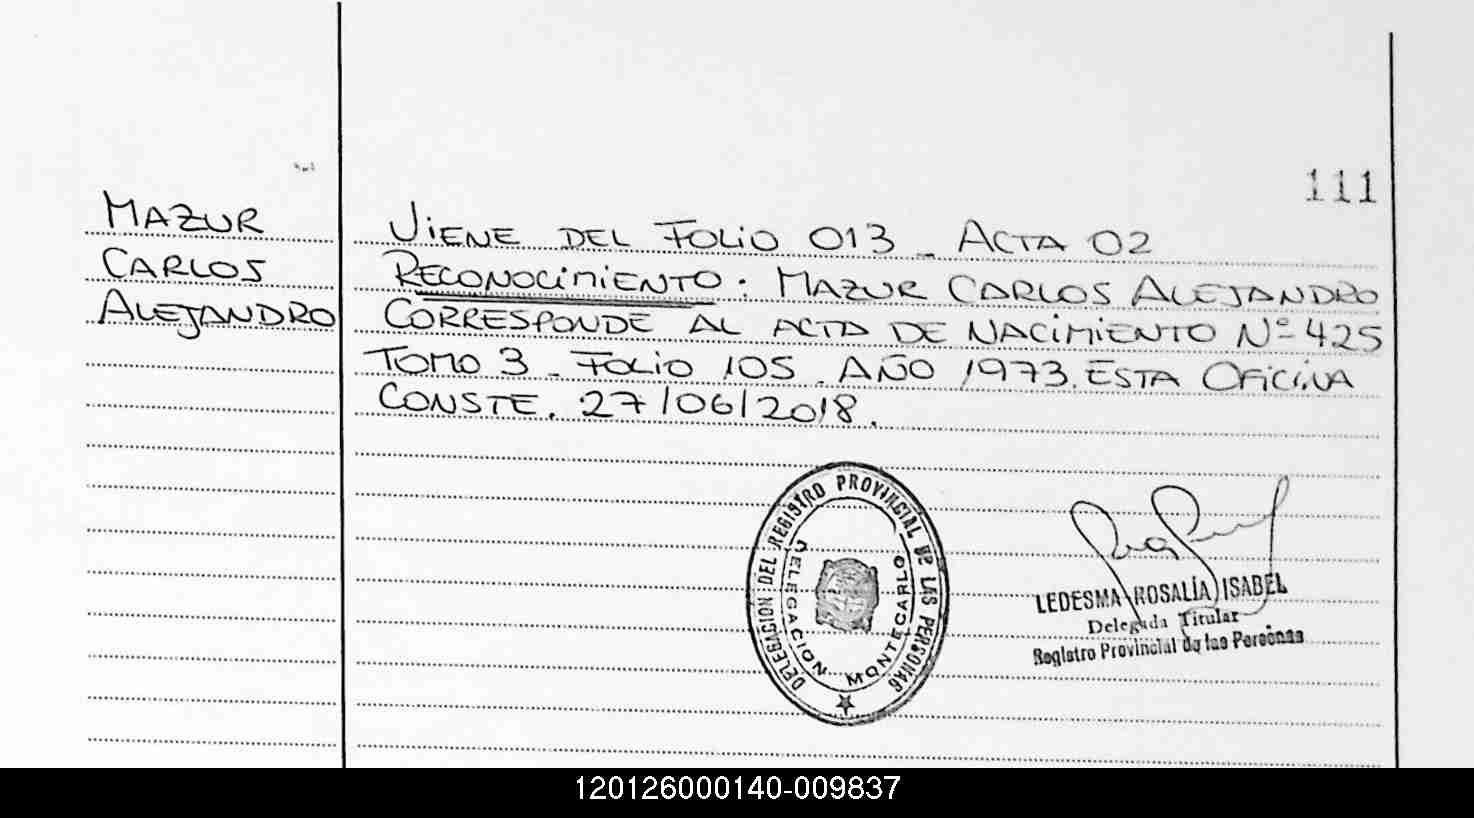 111
MAZUR
CARLOS
ALEJANDRO
VIENE DEL FOLIO 013 _ ACTA 02
RECONOCIMIENTO: MAZUR CARLOS ALEJANDRO
CORRESPONDE AL ACTA DE NACIMIENTO Nº 425
TOMO 3 _ FOLIO 105. AÑO 1973. ESTA OFICINA
CONSTE. 27/06/2018.
DELEGACION DEL REGISTRO PROVINCIAL DE LAS PERSONAS
DELEGACION MONTECARLO
LEDESMA ROSALÍA ISABEL
Delegada Titular
Registro Provincial de las Personas
120126000140-009837